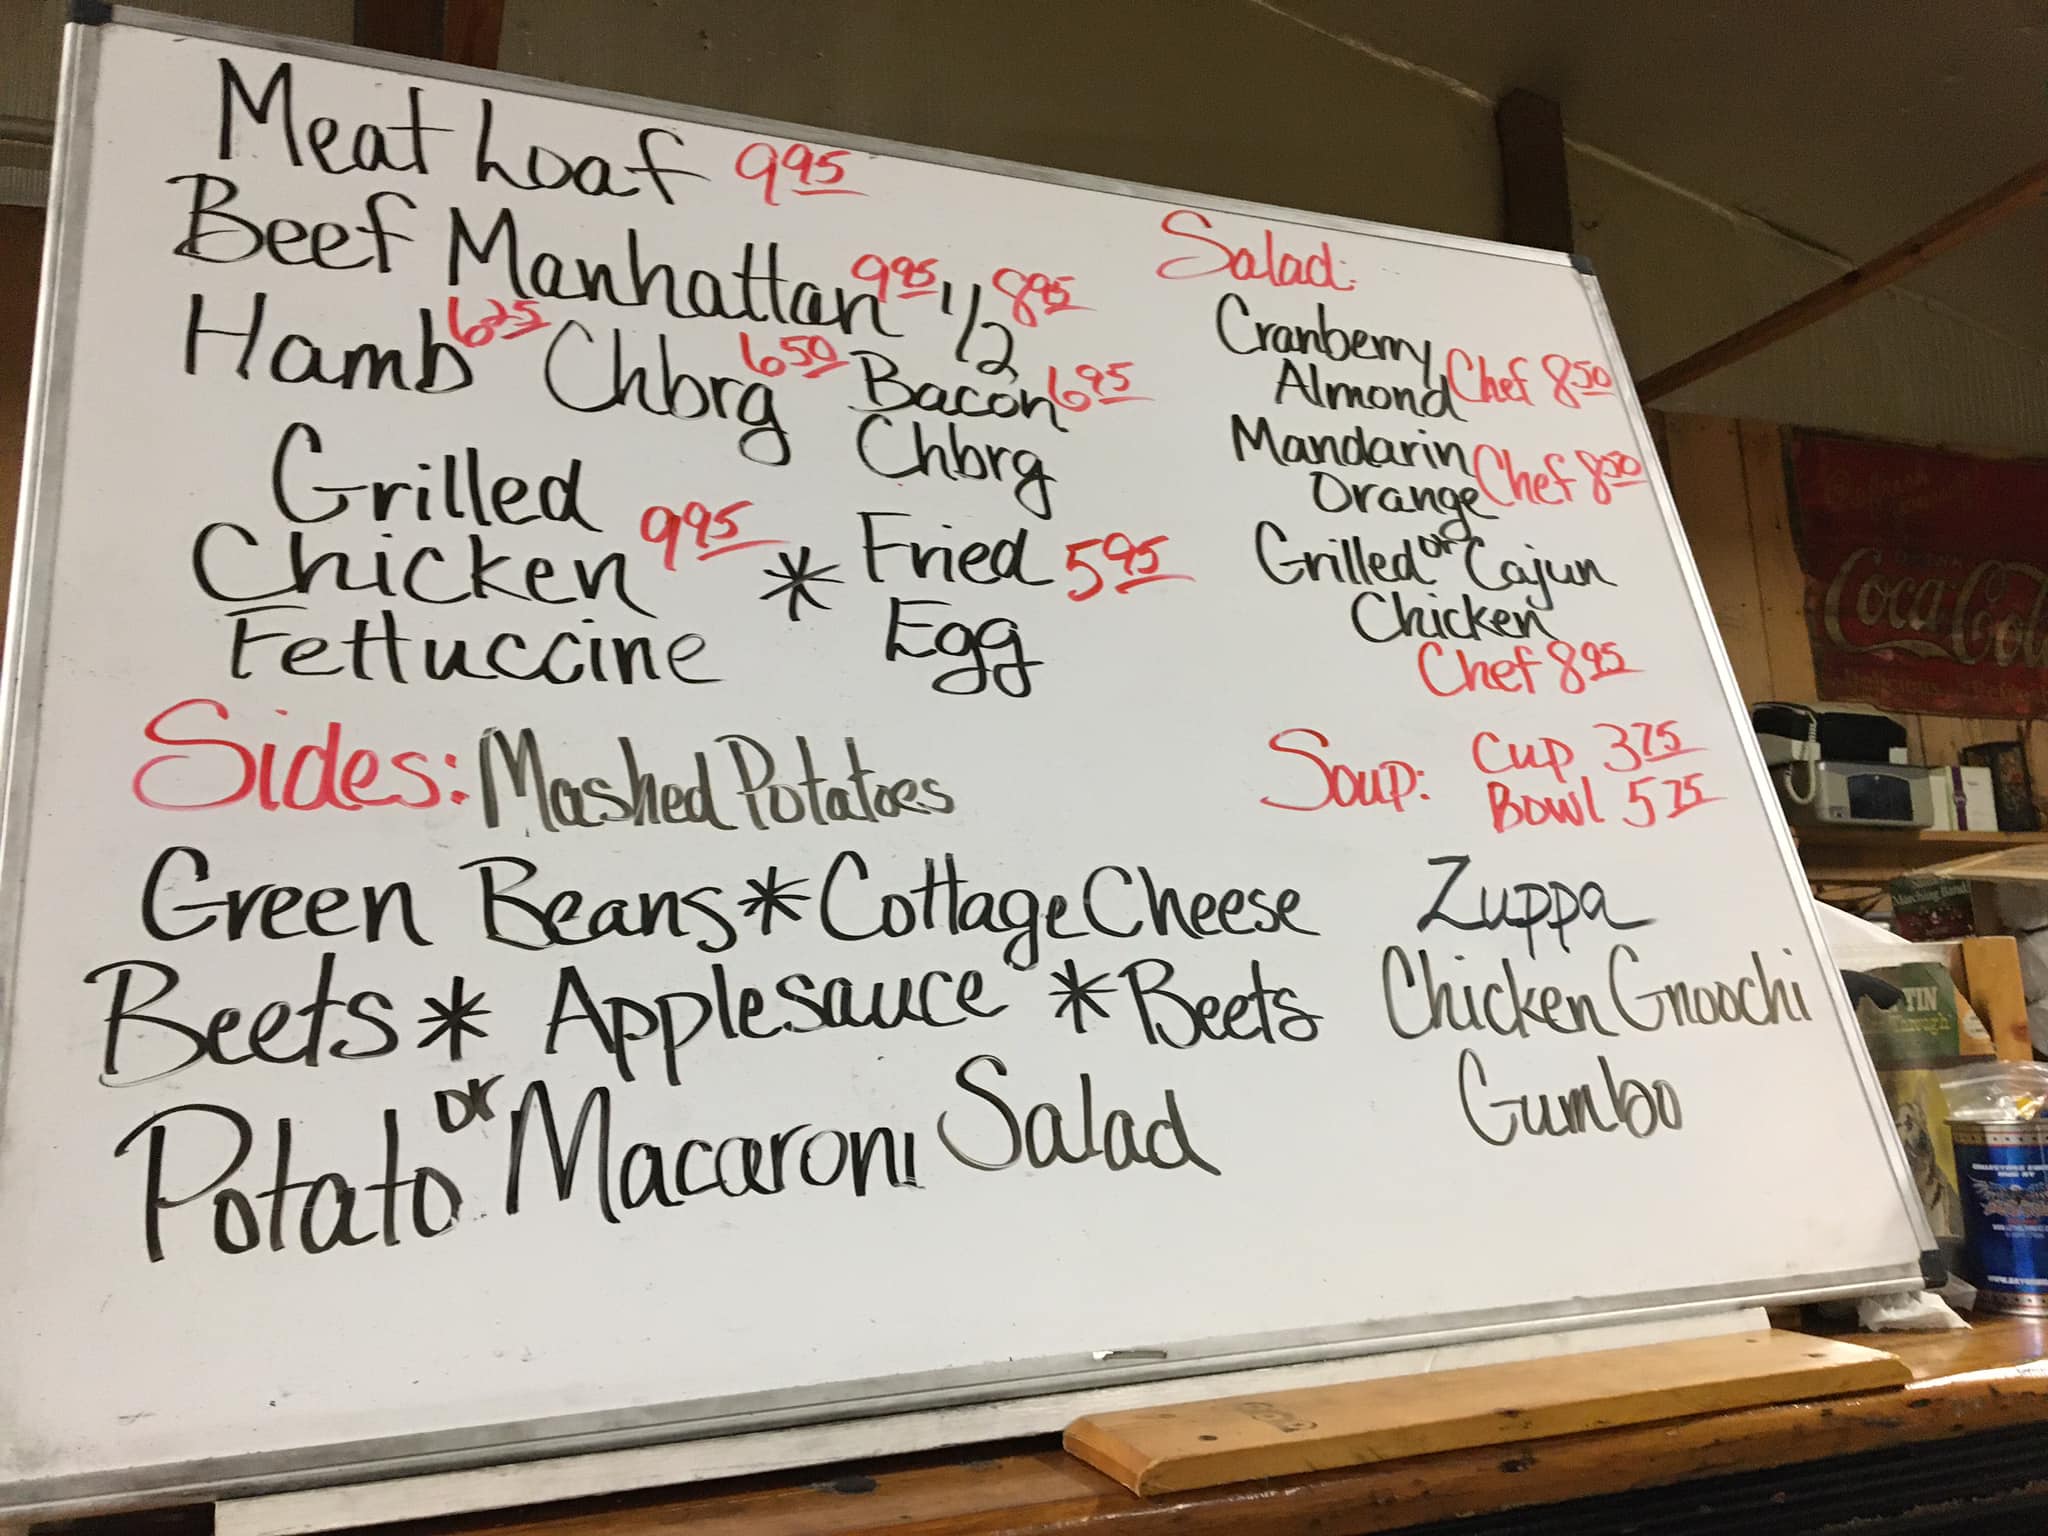 Meat Loaf 9 95
Beef Manhattan 9 95 1/2 8 95
Hamb 6 25 Chbrg 6 50 Bacon 6 95
Chbrg
Grilled
Chicken 9 95 * Fried 5 95
Fettuccine Egg
Sides: Mashed Potatoes
Green Beans * Cottage Cheese
Beets * Applesauce * Beets
Potato or Macaroni Salad
Salad:
Cranberry
Almond Chef 8 50
Mandarin
Orange Chef 8 50
Grilled or Cajun
Chicken
Chef 8 95
Soup: Cup 3 75
Bowl 5 75
Zuppa
Chicken Gnoochi
Gumbo
Coca Col
Marching Band
TIN